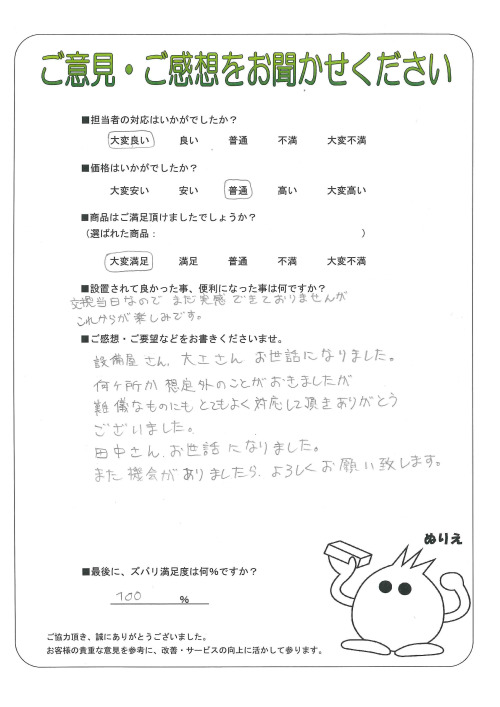 ご意見・ご感想をお聞かせください
■担当者の対応はいかがでしたか？
大変良い 良い 普通 不満 大変不満
■価格はいかがでしたか？
大変安い 安い 普通 高い 大変高い
■商品はご満足頂けましたでしょうか？
（選ばれた商品： ）
大変満足 満足 普通 不満 大変不満
■設置されて良かった事、便利になった事は何ですか？
交換当日なので まだ実感 できておりませんが
これからが楽しみです。
■ご感想・ご要望などをお書きくださいませ。
設備屋さん、大工さん お世話になりました。
何ヶ所か 想定外のことがおきましたが
難儀なものにも とてもよく対応して頂きありがとう
ございました。
田中さん、お世話になりました。
また機会がありましたら、よろしくお願い致します。
ぬりえ
■最後に、ズバリ満足度は何％ですか？
100 ％
ご協力頂き、誠にありがとうございました。
お客様の貴重な意見を参考に、改善・サービスの向上に活かして参ります。